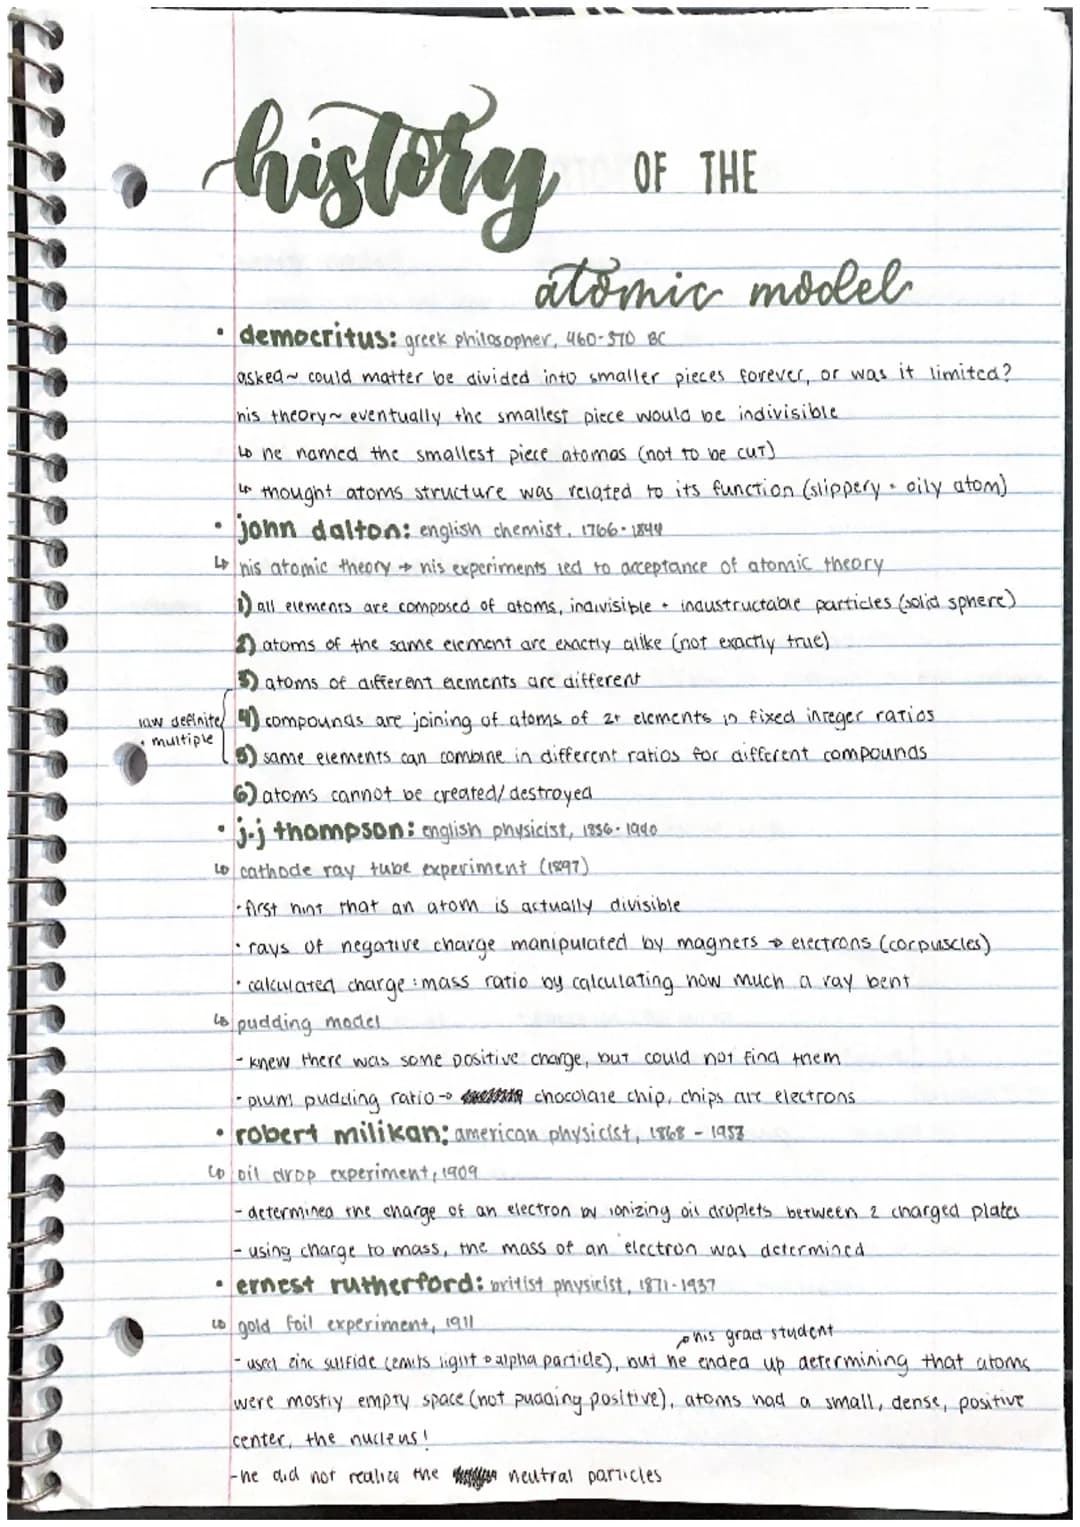 history OF THE
atomic model
• democritus: greek philosopher, 460-370 BC
asked~ could matter be divided into smaller pieces forever, or was it limited?
his theory~ eventually the smallest piece would be indivisible
↳ he named the smallest piece atomas (not to be cut)
↳ thought atoms structure was related to its function (slippery = oily atom)
• john dalton: english chemist, 1766-1844
↳ his atomic theory → his experiments led to acceptance of atomic theory
1) all elements are composed of atoms, indivisible + industructable particles (solid sphere)
2) atoms of the same element are exactly alike (not exactly true)
3) atoms of different elements are different
law definite
+ multiple
4) compounds are joining of atoms of 2+ elements in fixed integer ratios
5) same elements can combine in different ratios for different compounds
6) atoms cannot be created/destroyed
• j.j thompson: english physicist, 1856-1940
↳ cathode ray tube experiment (1897)
· first hint that an atom is actually divisible
· rays of negative charge manipulated by magnets → electrons (corpuscles)
· calculated charge:mass ratio by calculating how much a ray bent
↳ pudding model
- knew there was some positive charge, but could not find them
- plum pudding ratio → chocolate chip, chips are electrons
• robert milikan: american physicist, 1868 - 1953
↳ oil drop experiment, 1909
- determined the charge of an electron by ionizing oil droplets between 2 charged plates
- using charge to mass, the mass of an electron was determined
• ernest rutherford: britist physicist, 1871-1937
↳ gold foil experiment, 1911
his grad student
- used zinc sulfide (emits light alpha particle), but he ended up determining that atoms
were mostly empty space (not pudding positive), atoms had a small, dense, positive
center, the nucleus!
- he did not realize the neutral particles